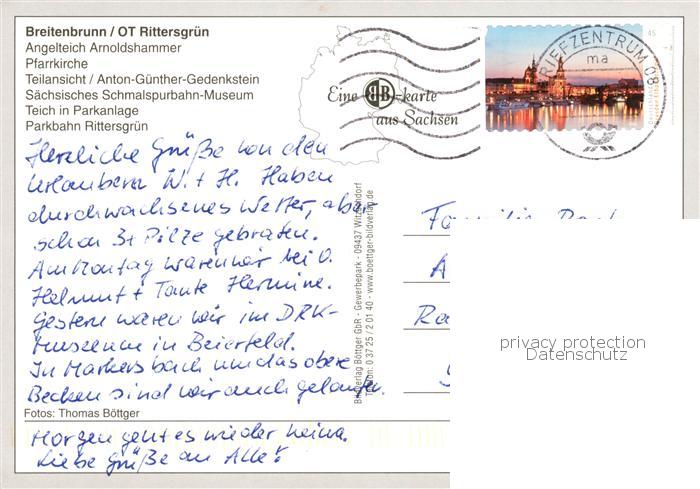 Breitenbrunn / OT Rittersgrün
Angelteich Arnoldshammer
Pfarrkirche
Teilansicht / Anton-Günther-Gedenkstein
Sächsisches Schmalspurbahn-Museum
Teich in Parkanlage
Parkbahn Rittersgrün
Eine BB-karte
aus Sachsen
BRIEFZENTRUM 08
ma
45
Herzliche Grüße von den
Urlaubern W. + H. Haben
durchwachsenes Wetter, aber
schon 3x Pilze gebraten.
Am Montag waren wir bei O.
Helmut + Tante Hermine.
Gestern waren wir im DRK-
Museum in Beierfeld.
In Markersbach um das obere
Becken sind wir auch gelaufen.
Fotos: Thomas Böttger
Morgen geht es wieder heim.
Liebe Grüße an Alle!
Bildverlag Böttger GbR - Gewerbepark - 09437 Witzschdorf
Telefon: 0 37 25 / 2 01 40 - www.boettger-bildverlag.de
Familie
privacy protection
Datenschutz